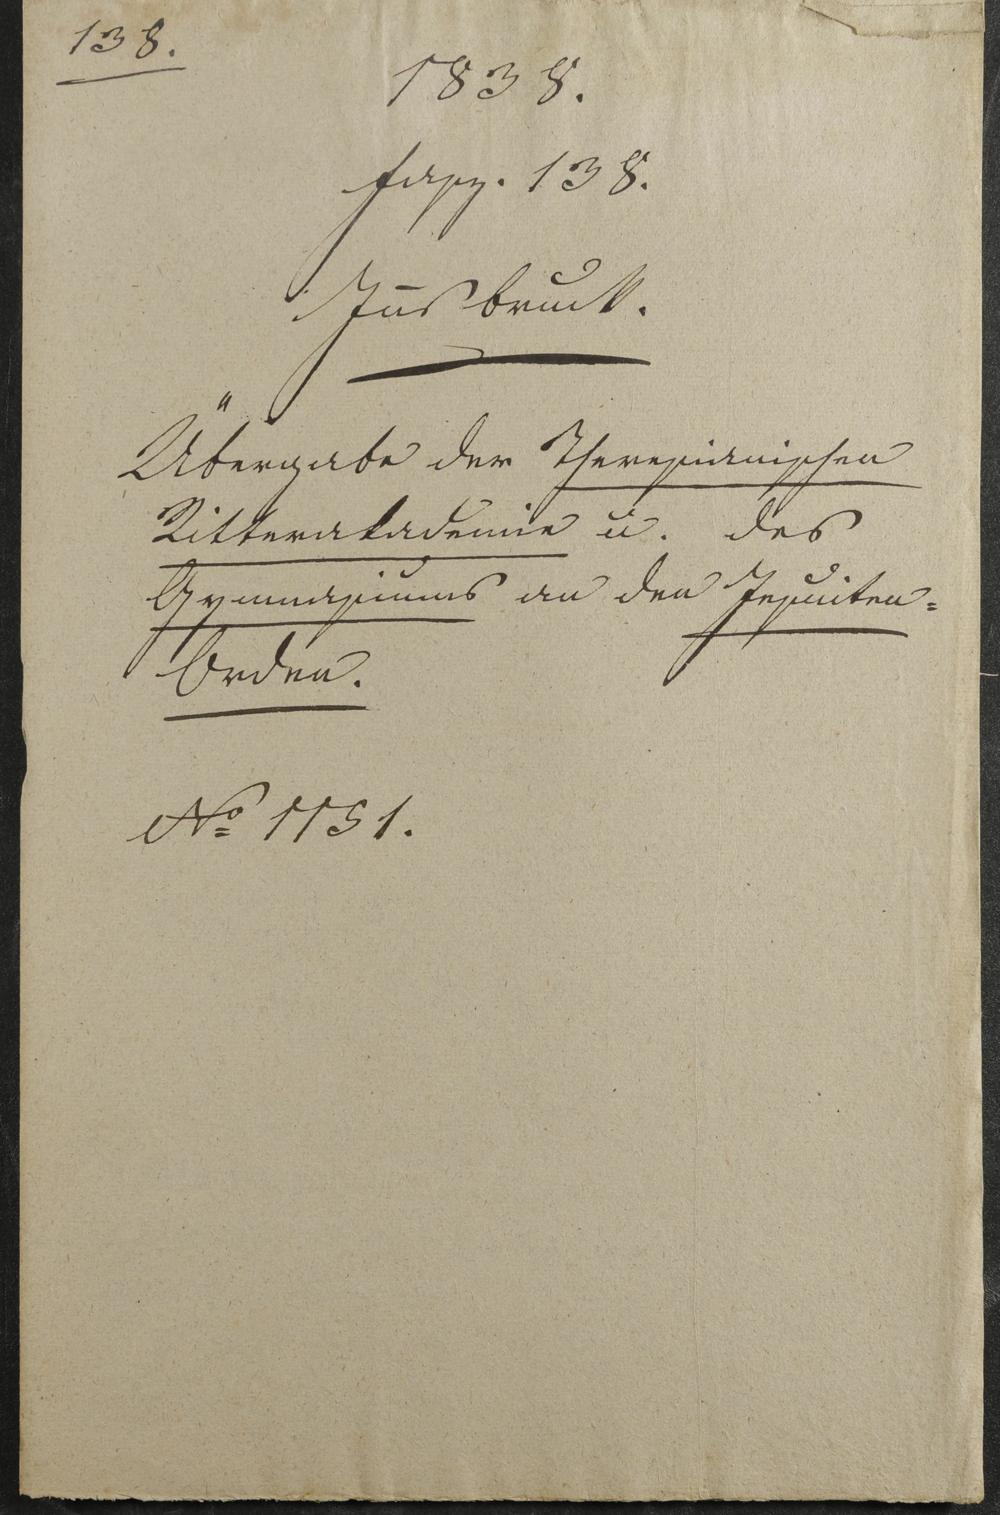 138.
1838.
fasz. 138.
Iñsbruck.
Übergabe der Theresianischen
Ritterakademie u. des
Gymnasiums an den Jesuiten-
Orden.
No 1151.